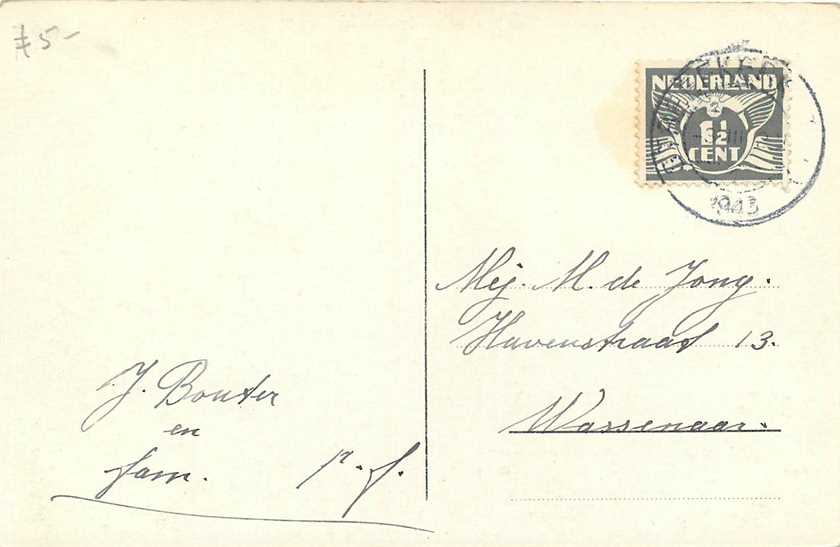 NEDERLAND
1½
CENT
1943
Mej. M. de Jong.
Havenstraat 13.
Wassenaar.
J. Bouter
en
fam. p.f.